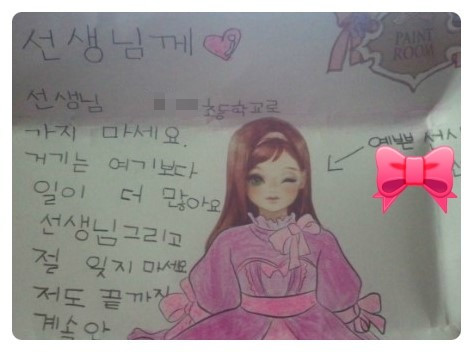 선생님께
PAINT
ROOM
선생님 초등학교로
가지 마세요.
거기는 여기보다
일이 더 많아요
선생님 그리고
절 잊지 마세요
저도 끝까지
계속 안
← 예쁜